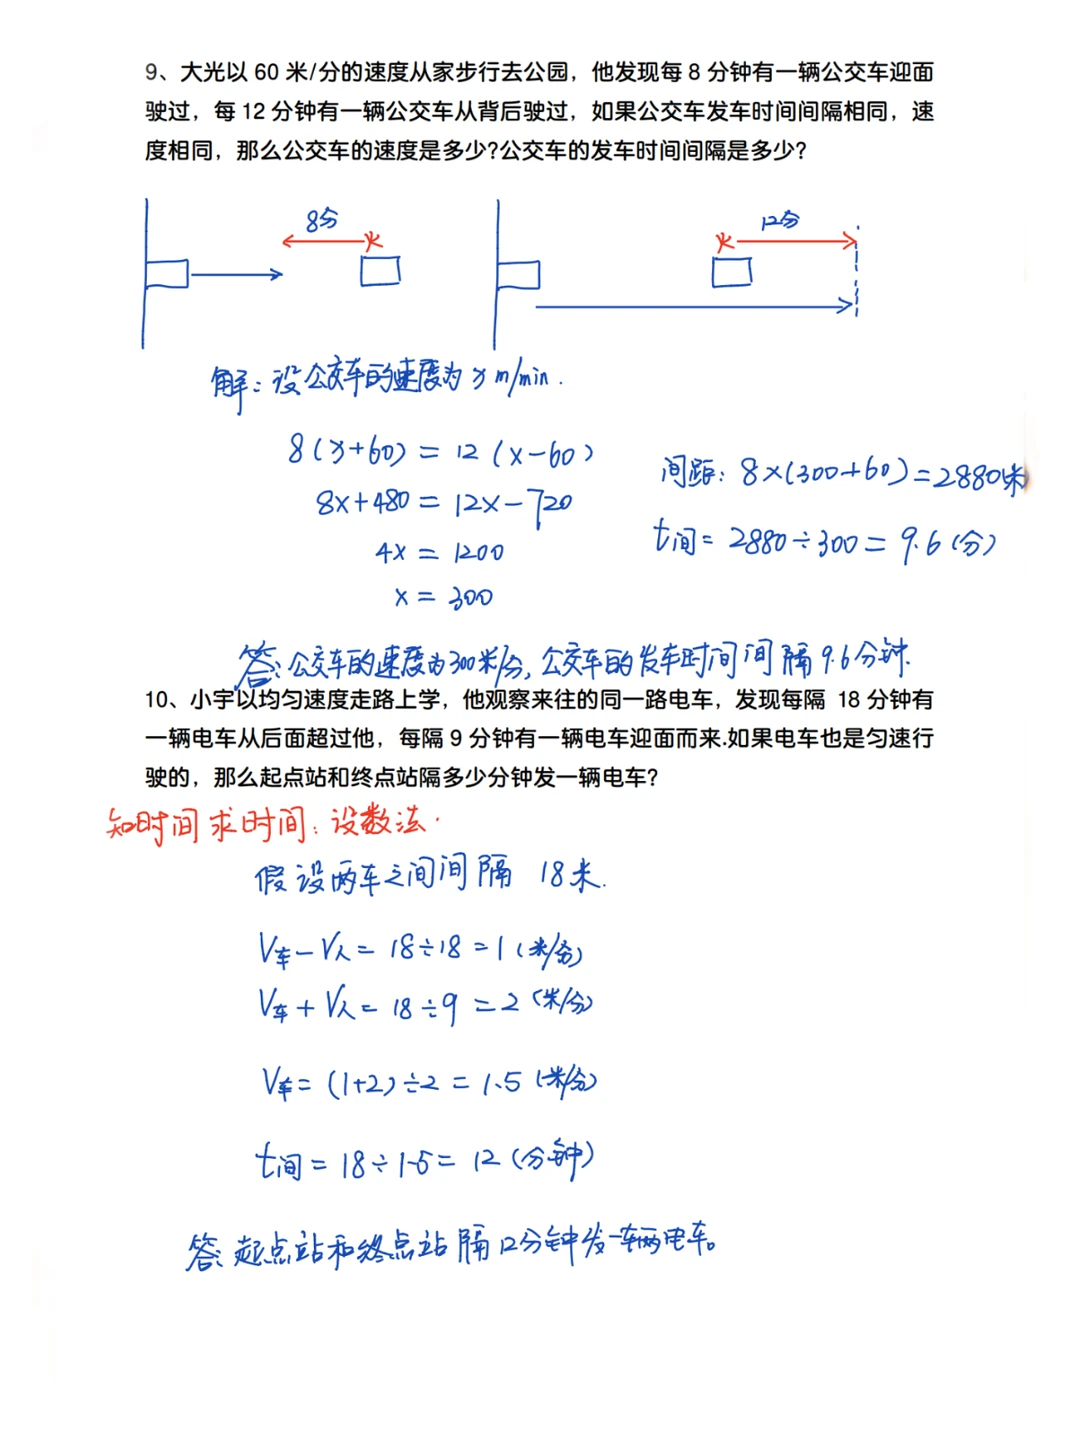 9、大光以 60 米/分的速度从家步行去公园，他发现每 8 分钟有一辆公交车迎面
驶过，每 12 分钟有一辆公交车从背后驶过，如果公交车发车时间间隔相同，速
度相同，那么公交车的速度是多少?公交车的发车时间间隔是多少?
8分
12分
解：设公交车的速度为 x m/min.
8(x+60) = 12(x-60)
8x+480 = 12x-720
4x = 1200
x = 300
间距：8×(300+60)=2880米
t间= 2880÷300=9.6(分)
答：公交车的速度为300米/分，公交车的发车时间间隔9.6分钟.
10、小宇以均匀速度走路上学，他观察来往的同一路电车，发现每隔 18 分钟有
一辆电车从后面超过他，每隔 9 分钟有一辆电车迎面而来.如果电车也是匀速行
驶的，那么起点站和终点站隔多少分钟发一辆电车?
知时间求时间：设数法.
假设两车之间间隔 18米.
V车-V人= 18÷18=1(米/分)
V车+V人= 18÷9=2(米/分)
V车= (1+2)÷2=1.5(米/分)
t间=18÷1.5=12(分钟)
答：起点站和终点站隔12分钟发一车辆电车。